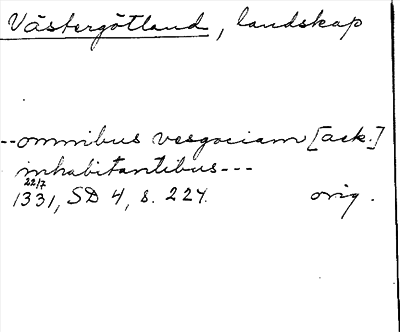 Västergötland, landskap
--omnibus vesgociam [ack.]
inhabitantibus---
22/7
1331, SD 4, s. 224. orig.